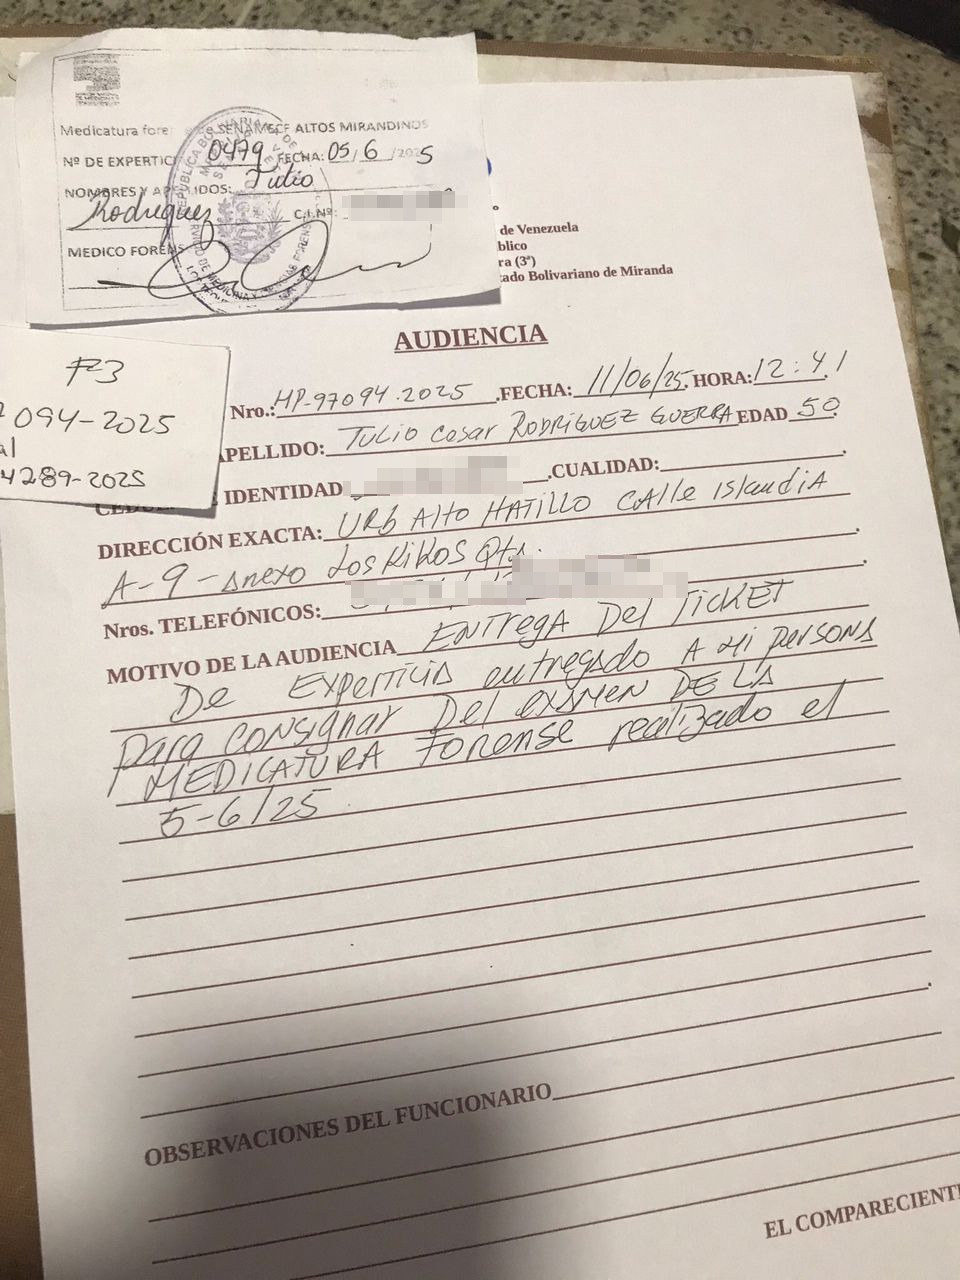 Medicatura fore de SENAMECF ALTOS MIRANDINOS
Nº DE EXPERTICI 0479 FECHA: 05/6/2025
NOMBRES Y APELLIDOS: Tulio
Rodriguez C.I.Nº:
MEDICO FORENS
de Venezuela
blico
ra (3ª)
tado Bolivariano de Miranda
AUDIENCIA
F3
094-2025
al
4289-2025
Nro.: MP-97094-2025 .FECHA: 11/06/25. HORA: 12:41
APELLIDO: TULIO Cesar RODRIGUEZ GUERRA EDAD 50
CEDULA DE IDENTIDAD .CUALIDAD:
DIRECCIÓN EXACTA: URb AltO HATILLO CAlle islandiA
A-9-Anexo Los KIKOS Qta.
Nros. TELEFÓNICOS:
MOTIVO DE LA AUDIENCIA ENtregA Del TICKET
De Experticia entregado A Mi persona
para consignar Del exAMEN DE LA
MEDICATURA Forense realizado el
5-6/25
OBSERVACIONES DEL FUNCIONARIO
EL COMPARECIENTE